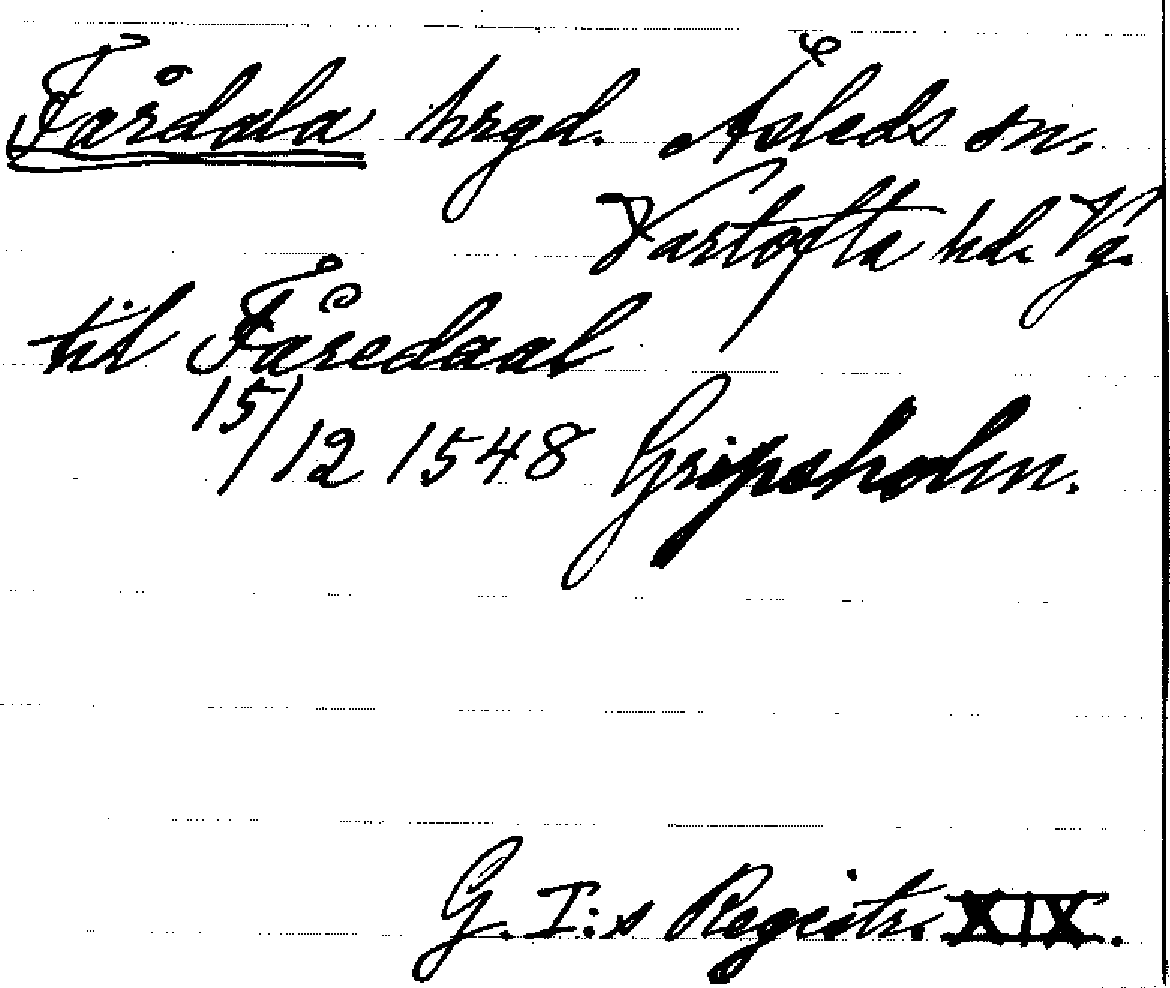 Fårdala hrgd. Åsleds sn,
Vartofta hd. Vg.
till Fåredaal
15/12 1548 Gripsholm.
G. I:s Registr. XIX.